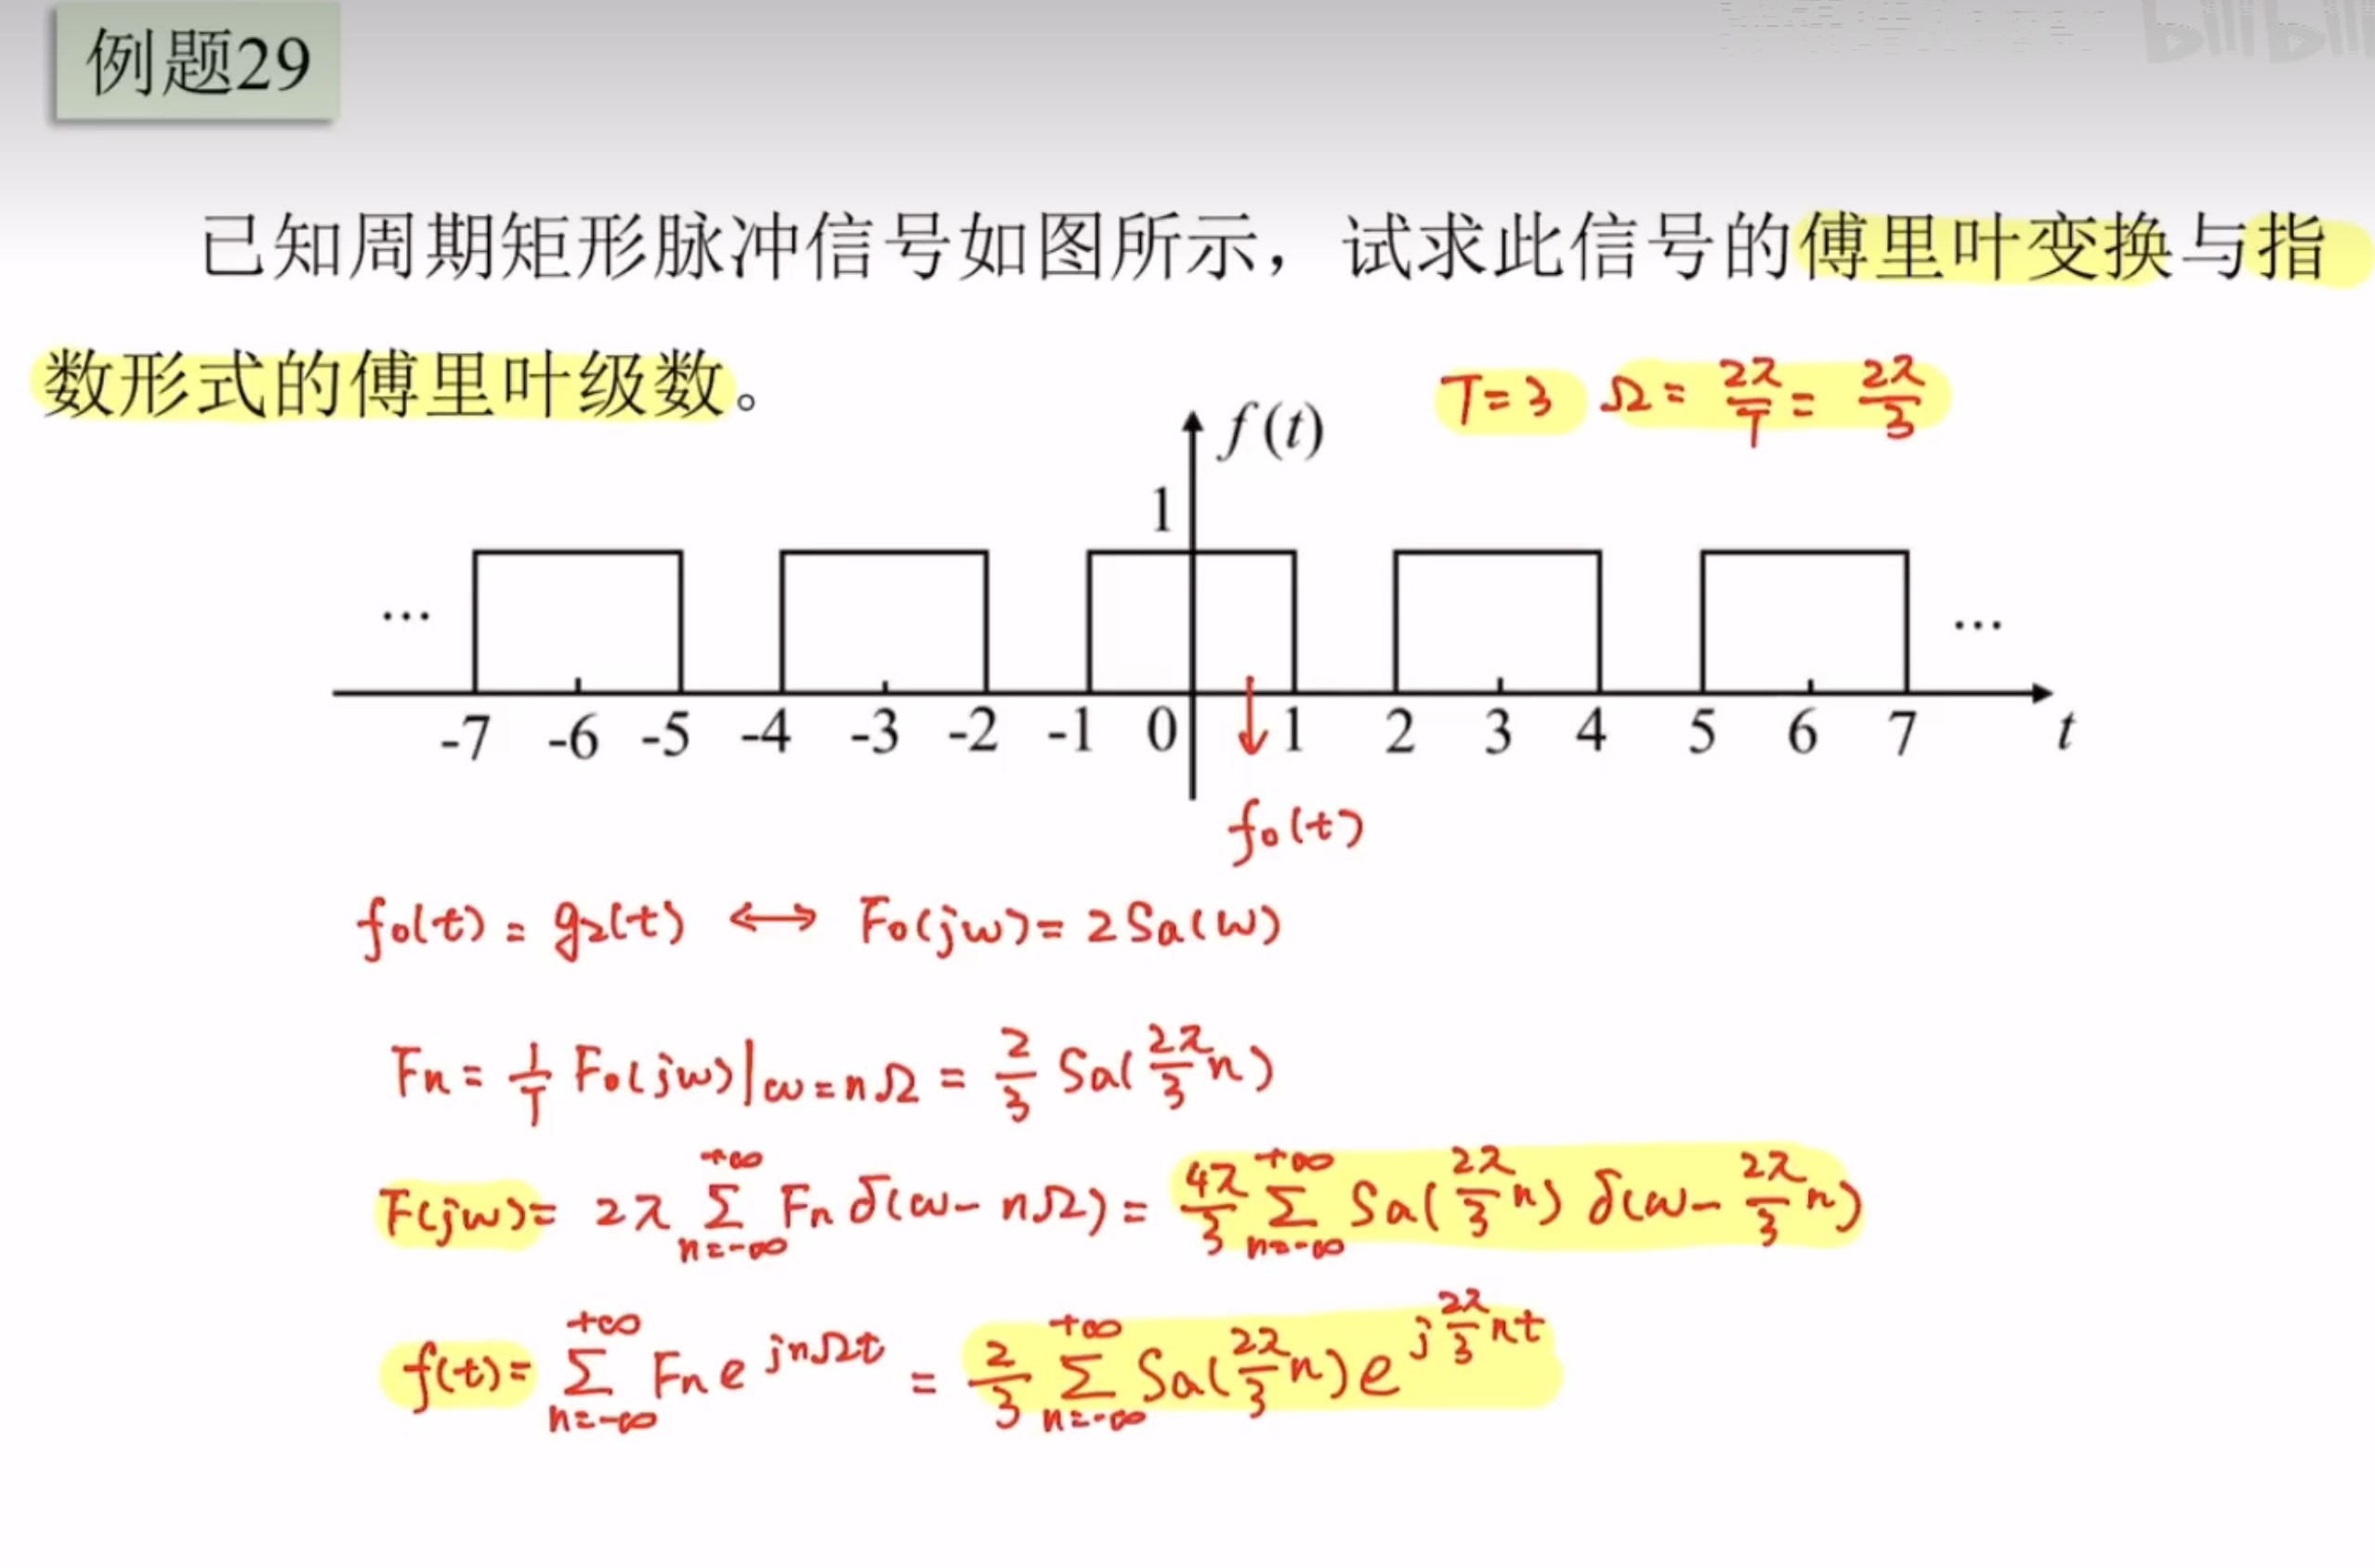 例题29
bilibili
已知周期矩形脉冲信号如图所示，试求此信号的傅里叶变换与指
数形式的傅里叶级数。
T=3 Ω=2π/T=2π/3
f(t)
1
... ...
-7 -6 -5 -4 -3 -2 -1 0 1 2 3 4 5 6 7 t
f₀(t)
f₀(t)=g₂(t) ⟷ F₀(jω)=2Sa(ω)
Fn=1/T F₀(jω)|ω=nΩ=2/3 Sa(2π/3 n)
F(jω)=2π +∞∑n=-∞ Fn δ(ω-nΩ)=4π/3 +∞∑n=-∞ Sa(2π/3 n) δ(ω-2π/3 n)
f(t)=+∞∑n=-∞ Fn e^{jnΩt}=2/3 +∞∑n=-∞ Sa(2π/3 n) e^{j2π/3 nt}